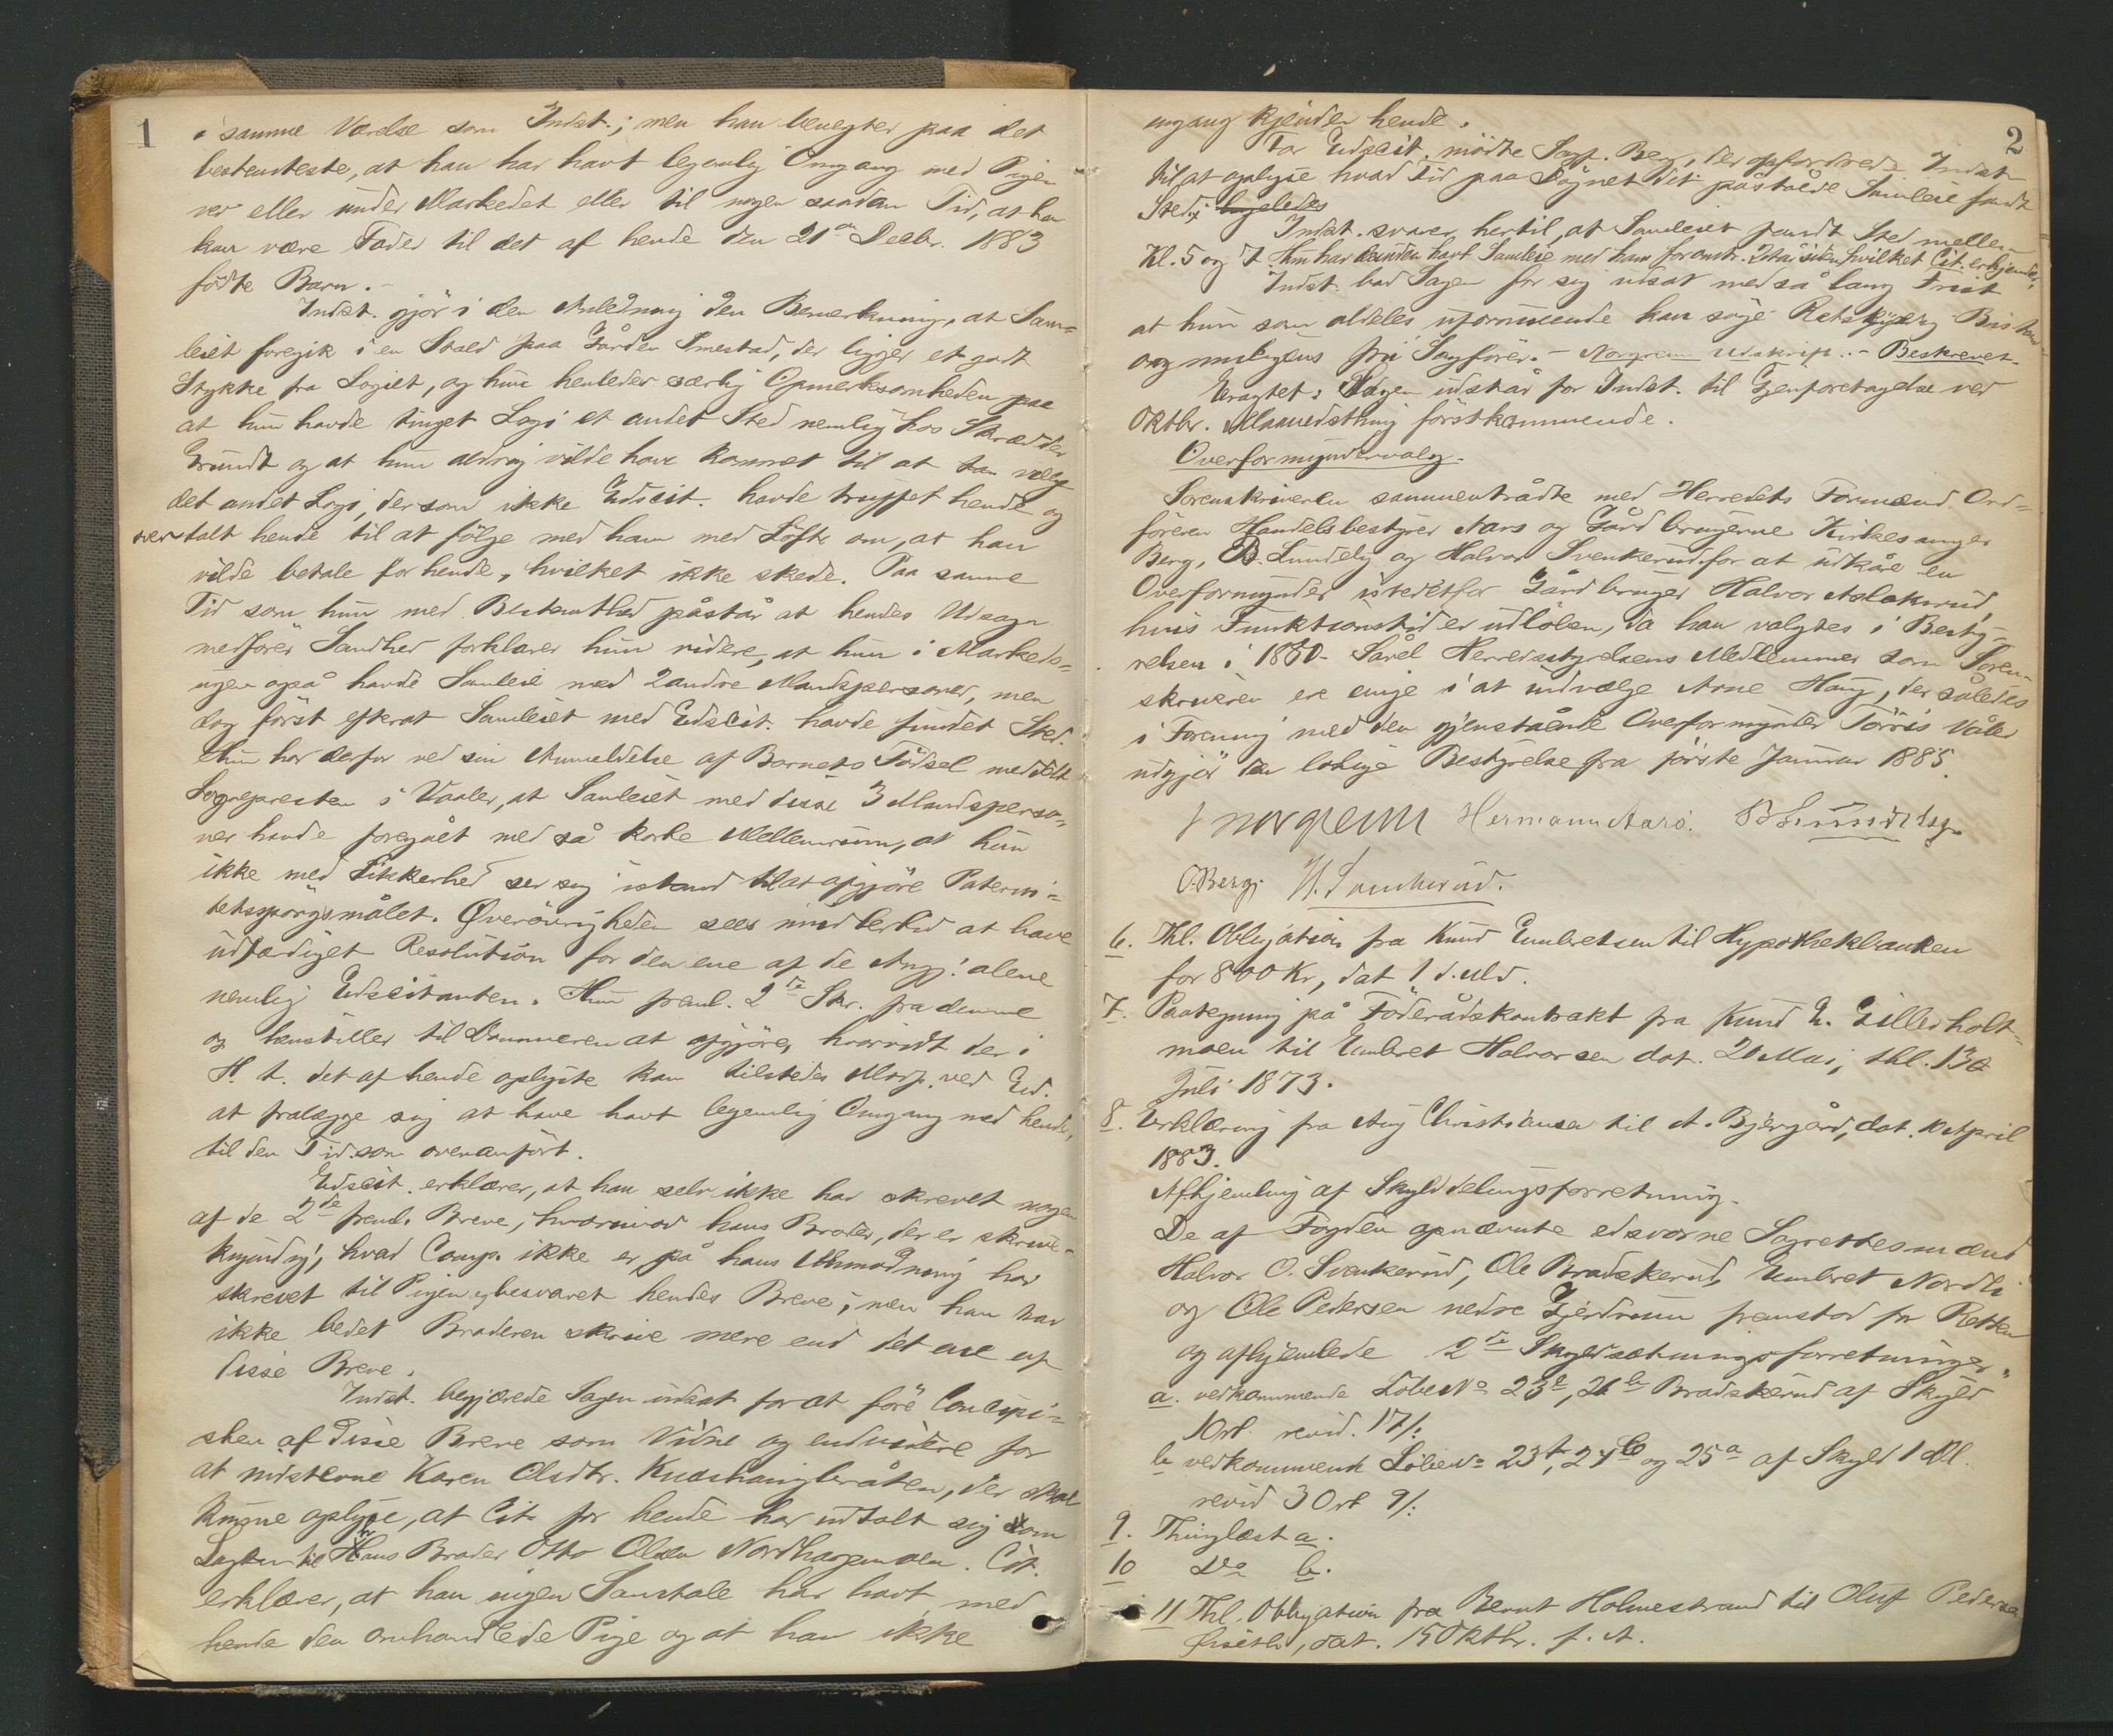 1
i samme Værelse som Indst.; men han benegter paa det
bestemteste, at han har havt legemlig Omgang med Pigen
ved eller under Markedet eller til nogen saadan Tid, at han
kan være Fader til det af hende den 21de Decbr. 1883
födte Barn. -
Indst. gjör i den Anledning den Bemerkning, at Sam=
leiet foregik i en Stald paa Gården Smestad, der ligger et godt
Stykke fra Logiet, og hun henleder særlig Opmerksomheden paa
at hun havde tinget Logi et andet Sted nemlig hos Skrædder
Grundt og at hun aldrig vilde have kommet til at vælge
det andet Logi, dersom ikke Edscit. havde truffet hende og
overtalt hende til at fölge med ham med Löfte om, at han
vilde betale for hende, hvilket ikke skede. Paa samme
Tid som hun med Bestemthed påstår at hendes Udsagn
medförer Sandhed forklarer hun videre, at hun i Markeds=
ugen også havde Samleie med 2 andre Mandspersoner, men
dog först efterat Samleiet med Edscit. havde fundet Sted.
Hun har derfor ved sin Anmeldelse af Barnets Födsel meddelt
Sognepresten i Vaaler, at Samleiet med disse 3 Mandsperso=
ner havde foregået med så korte Mellemrum, at hun
ikke med Sikkerhed ser sig istand til at afgjöre Paterni=
tetsspörgsmålet. Øverövrigheden sees imidlertid at have
udfærdiget Resolution for den ene af de Ang! alene
nemlig Edscitanten. Hun freml. 2de Skr. fra denne
og henstiller til Dommeren at afgjöre, hvorvidt der i
H. t. det af hende oplyste kan tilstedes Modp. ved Ed.
at fralægge sig at have havt legemlig Omgang med hende,
til den Tid som ovenanfört.
Edscit. erklærer, at han selv ikke har skrevet nogen
af de 2de freml. Breve, hvorimod hans Broder, der er skrive=
kyndig, hvad Comp. ikke er, på hans Anmodning har
skrevet til Pigen og besvaret hendes Breve; men han har
ikke bedet Broderen skrive mere end det ene af
disse Breve.
Indst. begjærede Sagen udsat for at före Concipi=
sten af disse Breve som Vidne og endvidere for
at indstevne Karen Olsdtr. , der skal
kunne oplyse, at Cit. for hende har udtalt sig som
til Hans Broder Otto Olsen Nordhagenmoen. Cit.
erklærer, at han ingen Samtale har havt med
hende den omhandlede Pige og at han ikke
2
engang kjender hende.
For Edscit. mödte Sagf. Berg, der opfordrede Indst
til at oplyse hvad Tid paa Dögnet det påståede Samleie fandt
Sted,
Indst. svarer hertil, at Samleiet fandt Sted mellem
Kl. 5 og 7. Hun har desuden havt Samleie med ham for omtr. 2 År siden, hvilket Cit. erkjender.
Indst. bad Sagen for sig udsat med så lang Frist
at hun som aldeles uformuende kan söge Retshjælp
og muligens fri Sagförer. - Norgrenn Udskrift. - Beskrevet.
Eragtet: Sagen udstår for Indst. til Gjenforetagelse ved
Oktbr. Maanedsthing förstkommende.
Overformyndervalg.
Sorenskriveren sammentrådte med Herredets Formænd Ord=
föreren Handelsbestyrer Aars og Gårdbrugerne Kirkesanger
Berg, B. Lundeby og Halvor Svenkerud for at udkåre en
Overformynder istedetfor Gårdbruger Halvor Aslakrud,
hvis Funktionstid er udlöben, da han valgtes i Besty=
relsen i 1880. Såvel Herredsstyrelsens Medlemmer som Soren=
skriveren ere enige i at udvælge Arne Haug, der således
i Forening med den gjenstående Overformynder Törris Våler
udgjör den lovlige Bestyrelse fra förste Januar 1885.
Norgrenn Hermann Aars.
O. Berg. H. Svenkerud.
6. Thl. Obligation fra Knud Embretsen til Hypothekbanken
for 800 Kr, dat 1 d. Md.
7. Paategning på Föderådskontrakt fra Knud E. Gillerholt=
moen til Embret Halvorsen dat. 20 Mai, thl. 13de
Juli 1873.
8. Erklæring fra Aug Christiansen til A. Bjergård, dat. 10 April
1883.
Afhjemling af Skylddelingsforretning.
De af Fogden opnævnte edsvorne Lagrettesmænd
Halvor O. Svenkerud, Ole Bradskerud, Embret Nordli
og Ole Pedersen nedre Gjerdrum fremstod for Retten
og afhjemlede 2de Skyldsætningsforretninger.
a. vedkommende Löbe No 23e, 26b Bradskerud af Skyld
1 Ort revid. 17 /:
b. vedkommende Löbe No 23f, 24b og 25a af Skyld 1 Dl.
revid 3 Ort 9 /:
9. Thinglæst a.
10 Do b.
11 Thl. Obligation fra Bernt Holmestrand til Oluf Pedersen
, dat. 15 Oktbr. f. A.